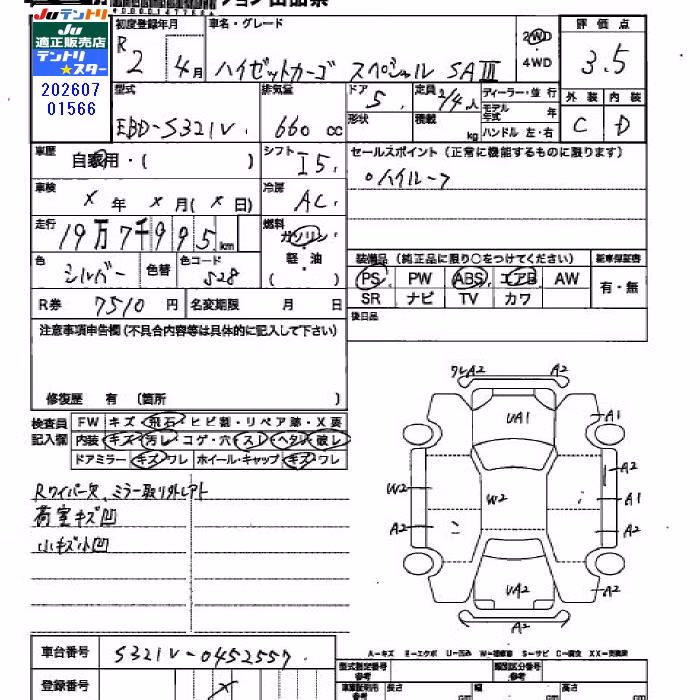 Juテントリ
JU
適正販売店
テントリ
★スター
202607
01566
初度登録年月
R 2 4月
車名・グレード
ハイゼットカーゴ スペシャル SAⅢ
2WD
4WD
評価点
3.5
外装 内装
C D
型式
EBD-S321V
排気量
660 cc
ドア
5
形状
定員
2/4人
積載
kg
ディーラー・並行
モデル年式 年
ハンドル 左・右
車歴
自家用・( )
シフト
I5
セールスポイント(正常に機能するものに限ります)
○ハイルーフ
車検
× 年 × 月(× 日)
冷房
AC
走行
19万7千995km
燃料
ガソリン
軽・油
( )
色
シルバー
色替
色コード
S28
装備品(純正品に限り○をつけてください)
新車保証書
PS PW ABS エアB AW
SR ナビ TV カワ
有・無
R券 7510 円
名変期限 月 日
後日品
注意事項申告欄(不具合内容等は具体的に記入して下さい)
修復歴 有 〔箇所 〕
検査員
記入欄
FW キズ・飛石・ヒビ割・リペア跡・X要
内装 キズ・汚レ・コゲ・穴・スレ・ヘタレ・破レ
ドアミラー キズ・ワレ ホイール・キャップ キズ・ワレ
Rワイパー欠、ミラー取り外しアト
荷室キズ凹
小キズ小凹
ワレA2 A2
UA1
A1
A2
W2
W2
A1
A2
A2
UA2
A2
A2
A-キズ E-エクボ U-凹み W-補修跡 S-サビ C-腐食 XX-交換済
車台番号 S321V-0452557
登録番号
型式指定番号
類別区分番号
長さ
cm
幅
cm
高さ
cm